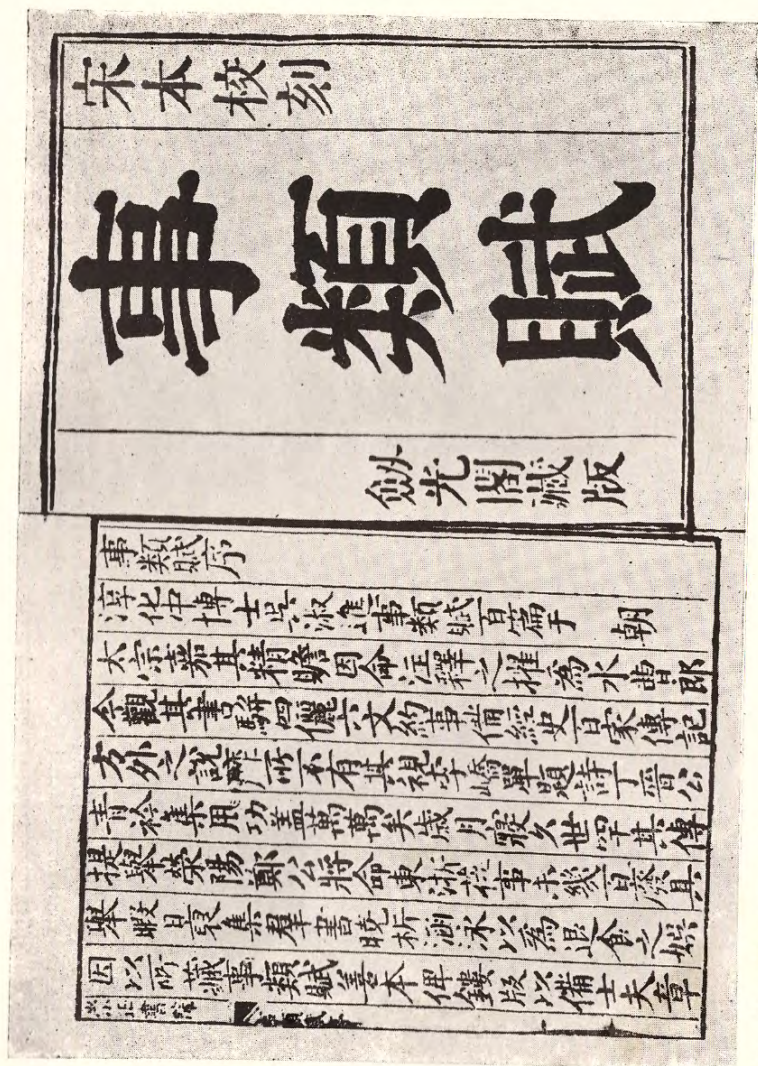 宋本校刻
事類賦
劒光閣藏版
事類賦序
淳化中博士吳淑進事類賦百篇于　朝
太宗嘉其精贍因命注釋之擢為水曹郎
今觀其書騈四儷六文約事備經史百家傳記
方外之說靡所不有其視李嶠單題詩丁晉公
青衿集用功蓋萬萬矣歲月寖久世罕其傳
提舉滎陽鄭公將命東浙莅事未幾百廢具
舉暇日裒集羣書曉析涵泳以為退食之娛
因以所藏事類賦善本俾鏤版以備士夫章